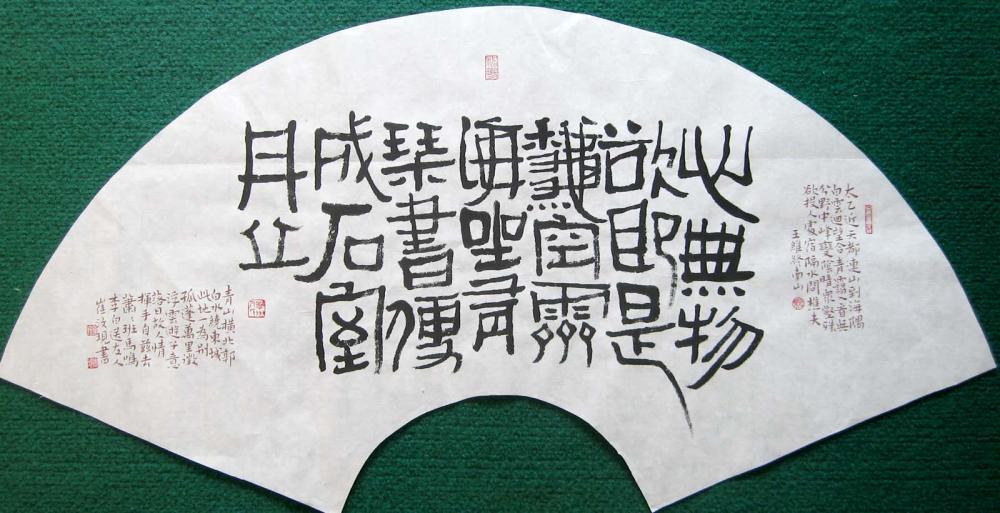 太乙近天都連山到海隅
白雲迴望合青靄入看無
分野中峰變陰晴衆壑殊
欲投人處宿隔水問樵夫
王維終南山
心無物
欲即是
龝空霽
海坐有
琴書便
成石室
丹丘
青山橫北郭
白水繞東城
此地一為別
孤蓬萬里徵
浮雲遊子意
落日故人情
揮手自茲去
蕭蕭班馬鳴
李白送友人
崔文現書